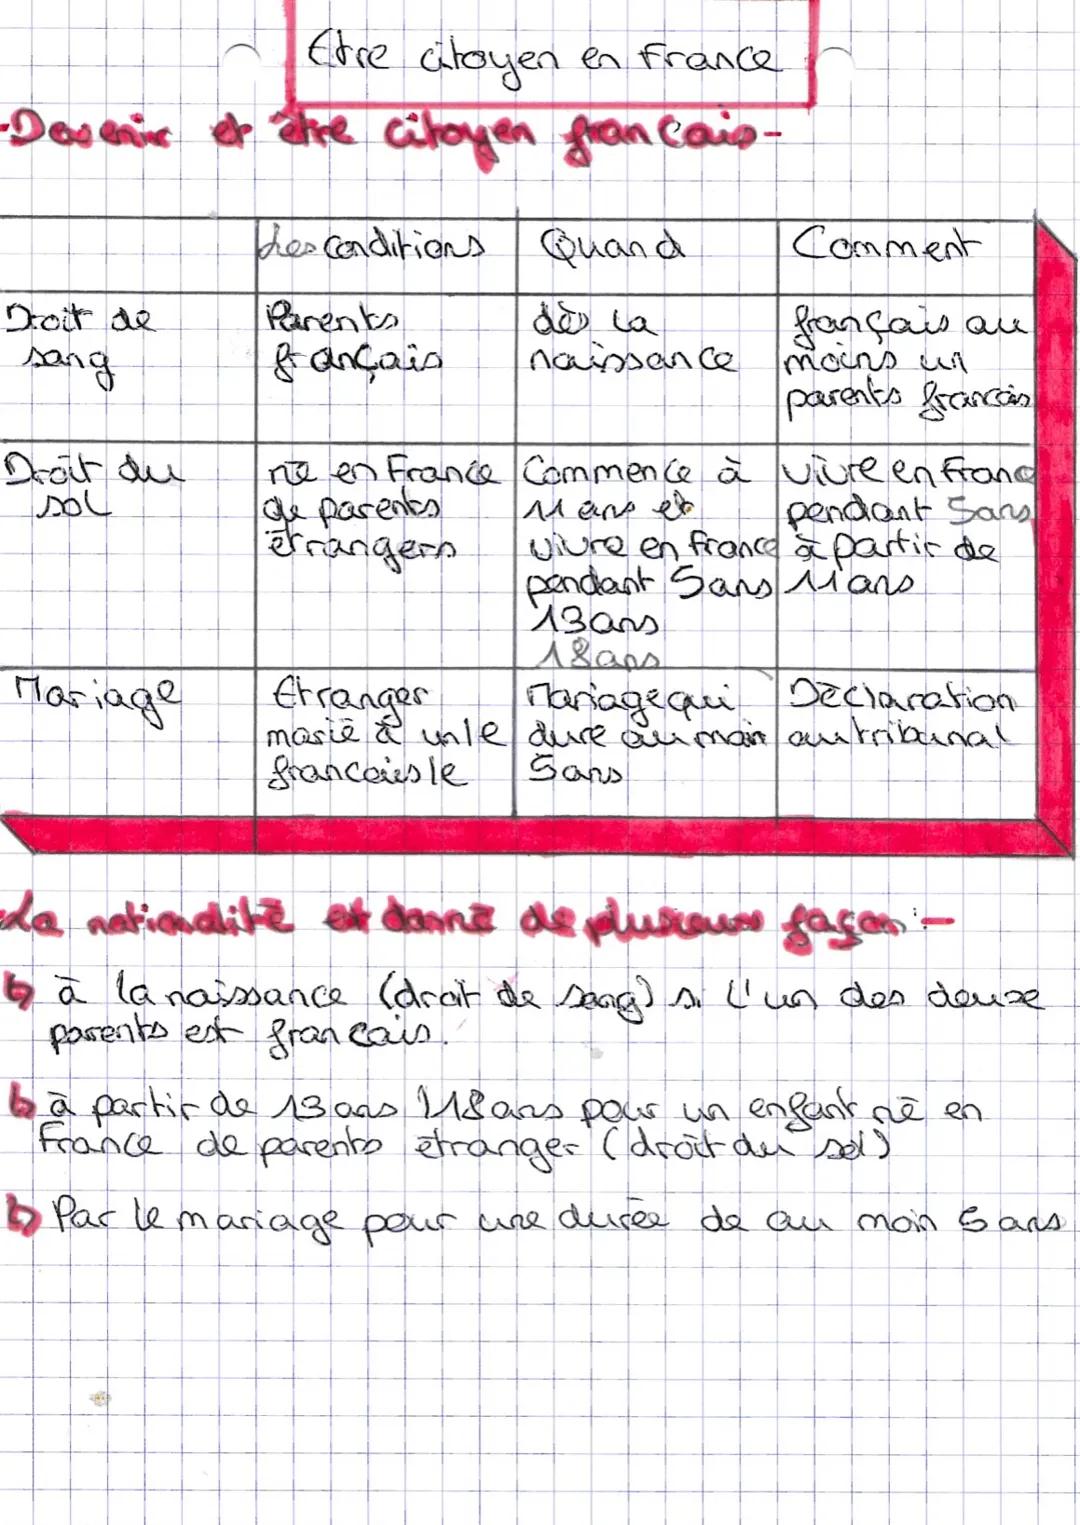 Etre citoyen en France
-Devenir et être citoyen francais-
Les conditions Quand Comment
Droit de sang
Parents
français
dès la
naissance
français au
moins un
parents francais
Droit du
sol
né en France
de parents
étrangers
Commence à
11 ans et
vivre en france
pendant 5ans
13ans
18ans
vivre en Franc
pendant 5ans
à partir de
11ans
Mariage
Etranger
marié à un/e
francais/e
Mariage qui
dure au moin
5ans
Déclaration
au tribunal
-La nationalité et donné de plusieurs façon:-
↳ à la naissance (droit de sang) si l'un des deux
parents est francais.
↳ à partir de 13 ans / 18 ans pour un enfant né en
France de parents étranger (droit du sol)
↳ Par le mariage pour une durée de au moin 5 ans